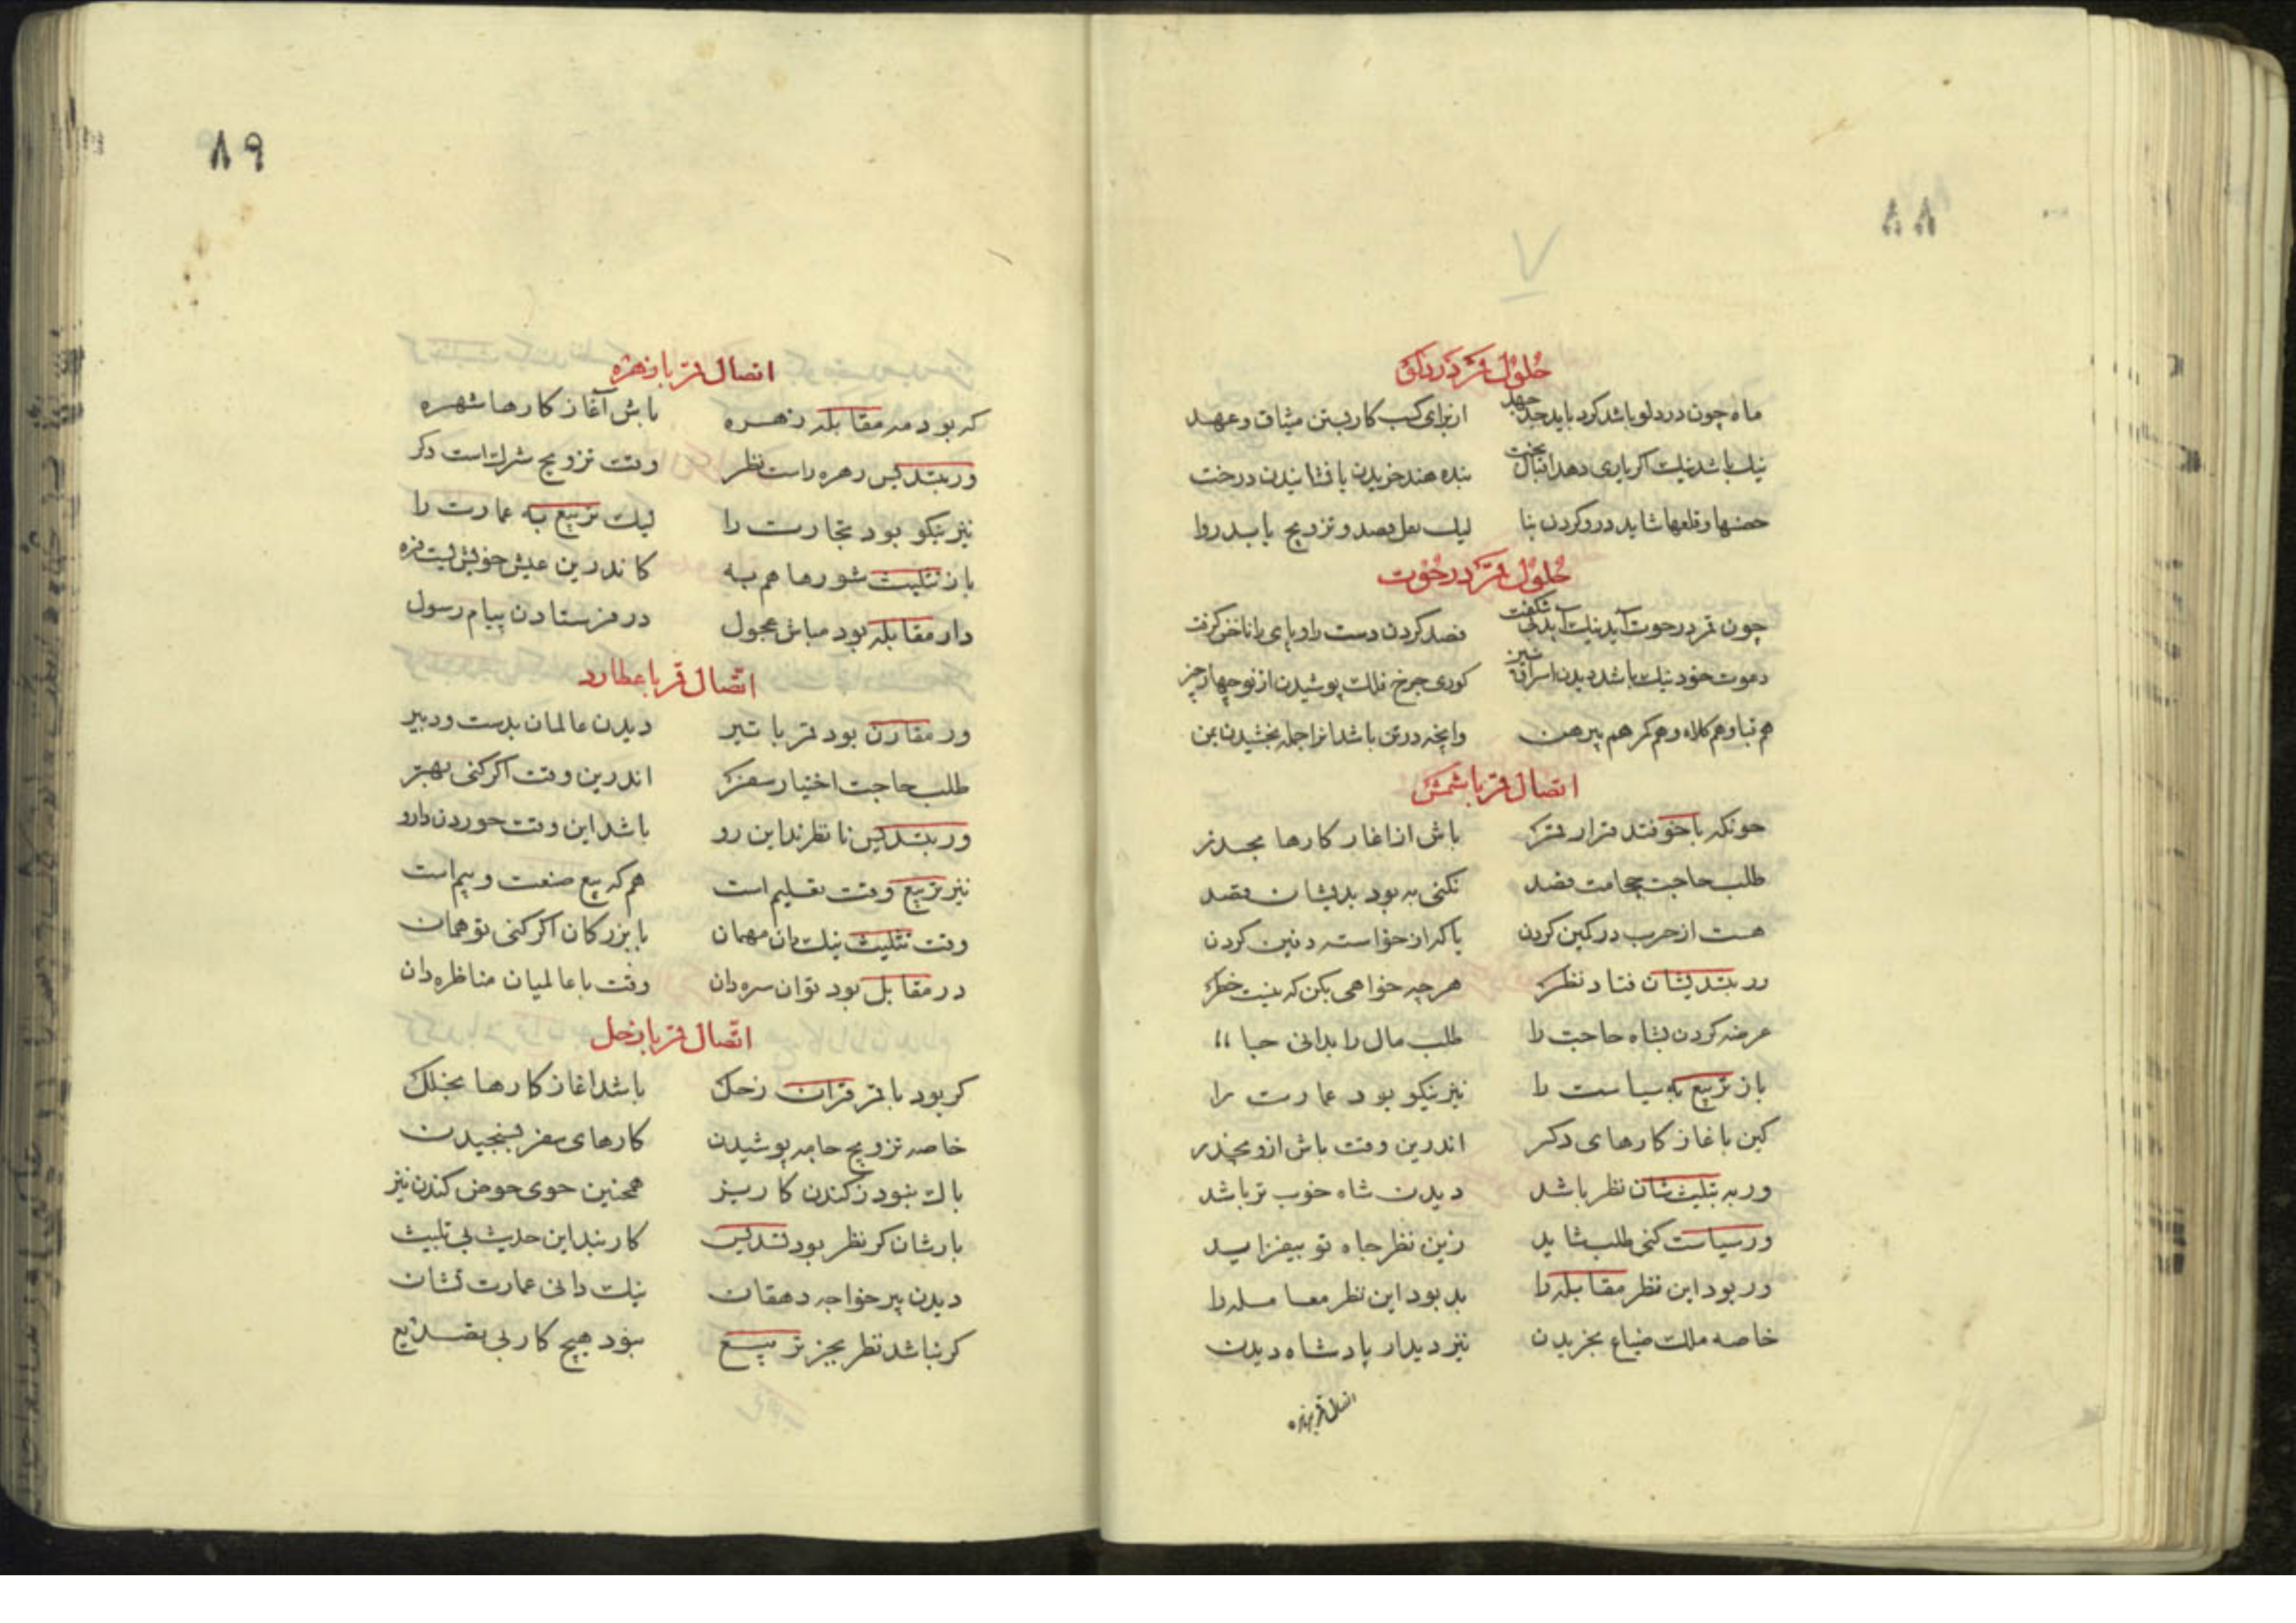 ٨٨
٧
حلول قمر در دلو
ماه چون در دلو باشد کرد باید جد جهد از برای کسب کار بستن میثاق و عهد
نیك باشد نیك اکر یاری دهد اقبال بخت بنده هند خریدن یا فشانیدن درخت
حصنها و قلعها شاید درو کردن بنا لیك نقل و فصد و تزویج باید روا
حلول قمر در حوت
چون قمر در حوت آید نیك آید شکفت فصد کردن دست را و پای را ناخن کرفت
دعوت خود نیك باشد دیدن اشراف نیز کوری چرخ فلك پوشیدن از نو چهار چیز
هم قبا و هم کلاه و هم کمر هم پیرهن وانچه در تن باشد انرا جمله بخشیدن بمن
اتصال قمر با شمس
چونکه با خو فتد قرار قمر باش از اغاز کارها بحذر
طلب حاجت حجامت فصد نکنی به بود بدیشان قصد
هست از حرب در کمین کردن یا که از خواسته دفین کردن
ور بتدیسشان فتاد نظر هرچه خواهی بکن که نیست خطر
عرضه کردن بشاه حاجت را طلب مال را بدانی حبا
باز تربیع به سیاست را نیز نیکو بود عمارت را
کین باغاز کارهای دکر اندرین وقت باش ازو بحذر
ور به تثلیثشان نظر باشد دیدن شاه خوب تر باشد
ور سیاست کنی طلب شاید زین نظر جاه تو بیفزاید
ور بود این نظر مقابله را بد بود این نظر معامله را
خاصه ملك ضیاع بخریدن نیز دیدار پادشاه دیدن
اتصال قمر بزهره
٨٩
اتصال قمر با زهره
که بود مه مقابله زهره باش آغاز کارها شهره
ور بتدیس زهره راست نظر وقت تزویج شرکت است دکر
نیز نیکو بود تجارت را لیك تربیع به عمارت را
باز تثلیث شورها هم به کاندرین عیش خویش نیست فره
دار مقابله بود مباش عجول در فرستادن پیام رسول
اتصال قمر با عطارد
ور مقارن بود قمر با تیر دیدن عالمان بدست و دبیر
طلب حاجت اختیار سفر اندرین وقت اکر کنی بهتر
ور بتدیس ناظرند این رو باشد این وقت خوردن دارو
نیز تربیع وقت تعلیم است هم که بیع صنعت و بیم است
وقت تثلیث نیك دان مهمان با بزرکان اکر کنی تو همان
در مقابل بود توان سره دان وقت با عالمیان مناظره دان
اتصال قمر با زحل
کر بود با قمر قران زحل باشد اغاز کارها بخلل
خاصه تزویج جامه پوشیدن کارهای سفر بسنجیدن
باك نبود ز کندن کاریز همچنین جوی حوض کندن نیز
بارشان کر نظر بود تدیس کار بند این حدیث بی تلبیث
دیدن پیر خواجه دهقان نیك دانی عمارت نشان
کر نباشد نظر بجز تربیع نبود هیچ کار بی تضییع